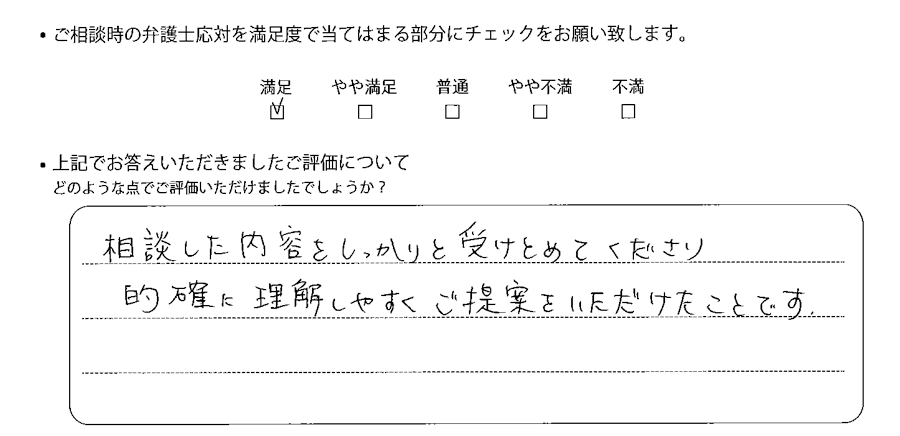 ・ご相談時の弁護士応対を満足度で当てはまる部分にチェックをお願い致します。
満足 やや満足 普通 やや不満 不満
☑ ☐ ☐ ☐ ☐
・上記でお答えいただきましたご評価について
どのような点でご評価いただけましたでしょうか？
相談した内容をしっかりと受けとめてくださり
的確に理解しやすくご提案をいただけたことです.